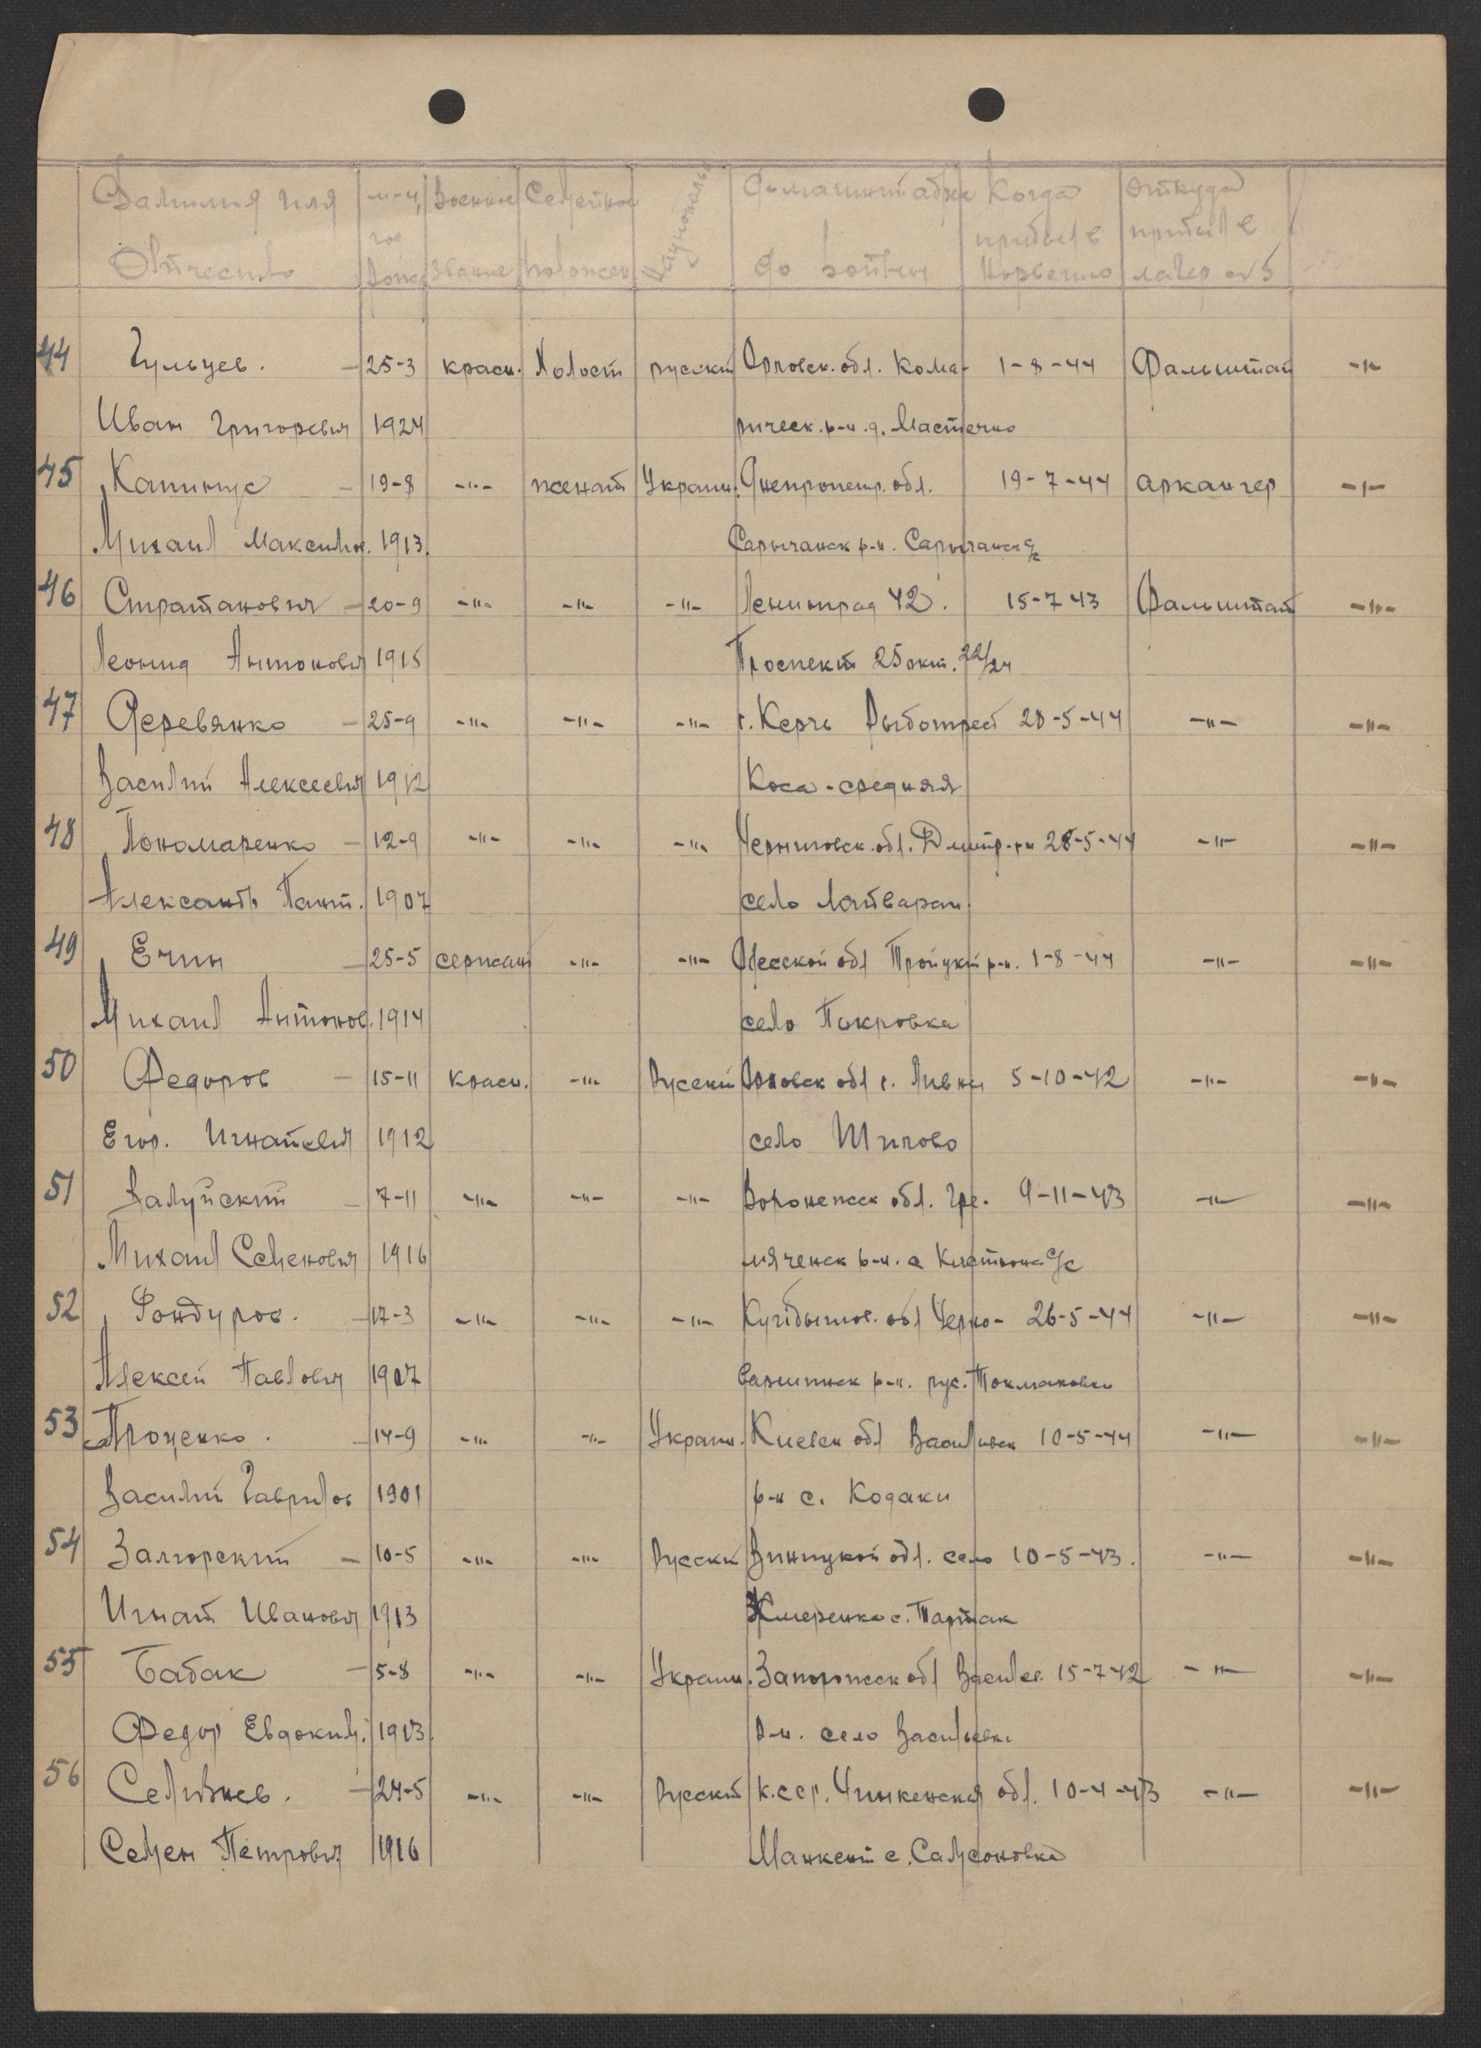 Фамилия имя м-ц, Военное Семейное Националь Домашний адрес Когда Откуда
год прибыл в прибыл в
Отчество рожд звание положен до войны Норвегию лагер № 5
44 Гульцев. – 25-3 красн. Холост русский Орловск. обл. Кома- 1-8-44 Фальштат -"-
Иван Григорьевич 1924 ричск. р-н. д.
45 – 19-8 -"- женат Украин. Днепропетр. обл. 19-7-44 аркангер -"-
Михаил Максимов. 1913. Сарычанск р-н. Сарычанск
46 Стратанович – 20-9 -"- -"- -"- Ленинград 42. 15-7 43 Фальштат -"-
Леонид Антонович 1915 Проспект 25 окт. 22/24
47 Деревянко – 25-9 -"- -"- -"- г. Керчь Рыботрест 28-5-44 -"- -"-
Василий Алексеевич 1912 Коса - средняя
48 Пономаренко – 12-9 -"- -"- -"- Черниговск. обл. Дмитр. р-н 28-5-44 -"- -"-
Александр Пант. 1907 село
49 Ечин – 25-5 сержант -"- -"- Одесской обл Троицкий р-н. 1-8-44 -"- -"-
Михаил Антонов. 1914 село Покровка
50 Федоров – 15-11 красн. -"- Русский Орловск обл г. Ливны 5-10-42 -"- -"-
Егор. Игнатьевич 1912 село Шипово
51 Валуйский – 7-11 -"- -"- -"- Воронежск обл. Гре- 9-11-43 -"- -"-
Михаил Семенович 1916 мяченск р-н. с
52 Фондуров. – 17-3 -"- -"- -"- Куйбышов. обл Черно- 26-5-44 -"- -"-
Алексей Павлович 1907 р-н. Токмаковки
53 Проценко. – 14-9 -"- -"- Украин. Киевск обл Васильевск 10-5-44 -"- -"-
Василий Гаврилов 1901 р-н с. Кодаки
54 Залгорский – 10-5 -"- -"- Русский Виницкой обл. село 10-5-43. -"- -"-
Игнат Иванович 1913 Жмеренко с.
55 Бабак – 5-8 -"- -"- Украин. Запорожск обл Васильев. 15-7 42 -"- -"-
Федор Евдоким. 1913. р-н. село Васильевка
56 Селизнев. – 24-5 -"- -"- Русский К.сср. Чимкенская обл. 10-4-43 -"- -"-
Семен Петрович 1916 Манкент с. Самсоновка